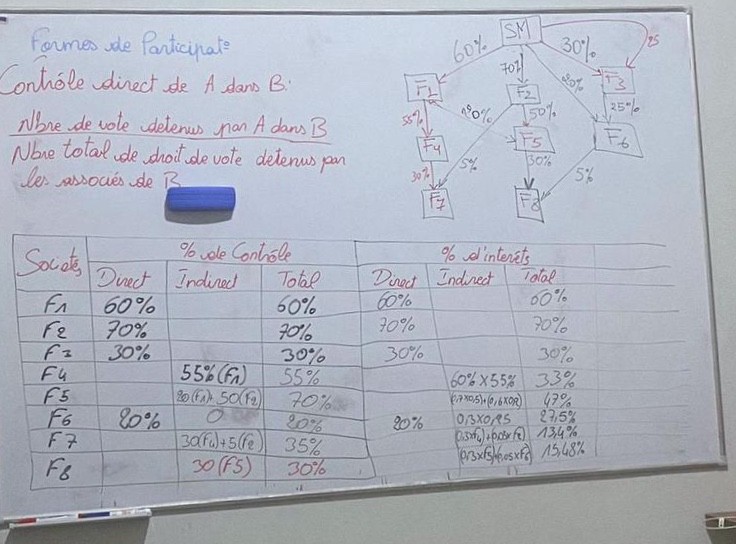 Formes de Participat°
Contrôle direct de A dans B:
Nbre de vote detenus par A dans B
Nbre total de droit de vote detenus par
les associés de B
SM
60%
70%
20%
30%
25
F1
F2
F3
55%
50%
25%
F4
F5
F6
30%
5%
30%
5%
F7
F8
Sociétés % de Contrôle % d'intérêts
Direct Indirect Total Direct Indirect Total
F1 60% 60% 60% 60%
F2 70% 70% 70% 70%
F3 30% 30% 30% 30%
F4 55% (F1) 55% 60% x 55% 33%
F5 20(F1)+50(F2) 70% (0,7x0,5)+(0,6x0,2) 47%
F6 20% 0 20% 20% 0,3x0,25 27,5%
F7 30(F4)+5(F2) 35% (0,3xF4)+(0,05xF2) 13,4%
F8 30(F5) 30% (0,3xF5)+(0,05xF6) 15,48%